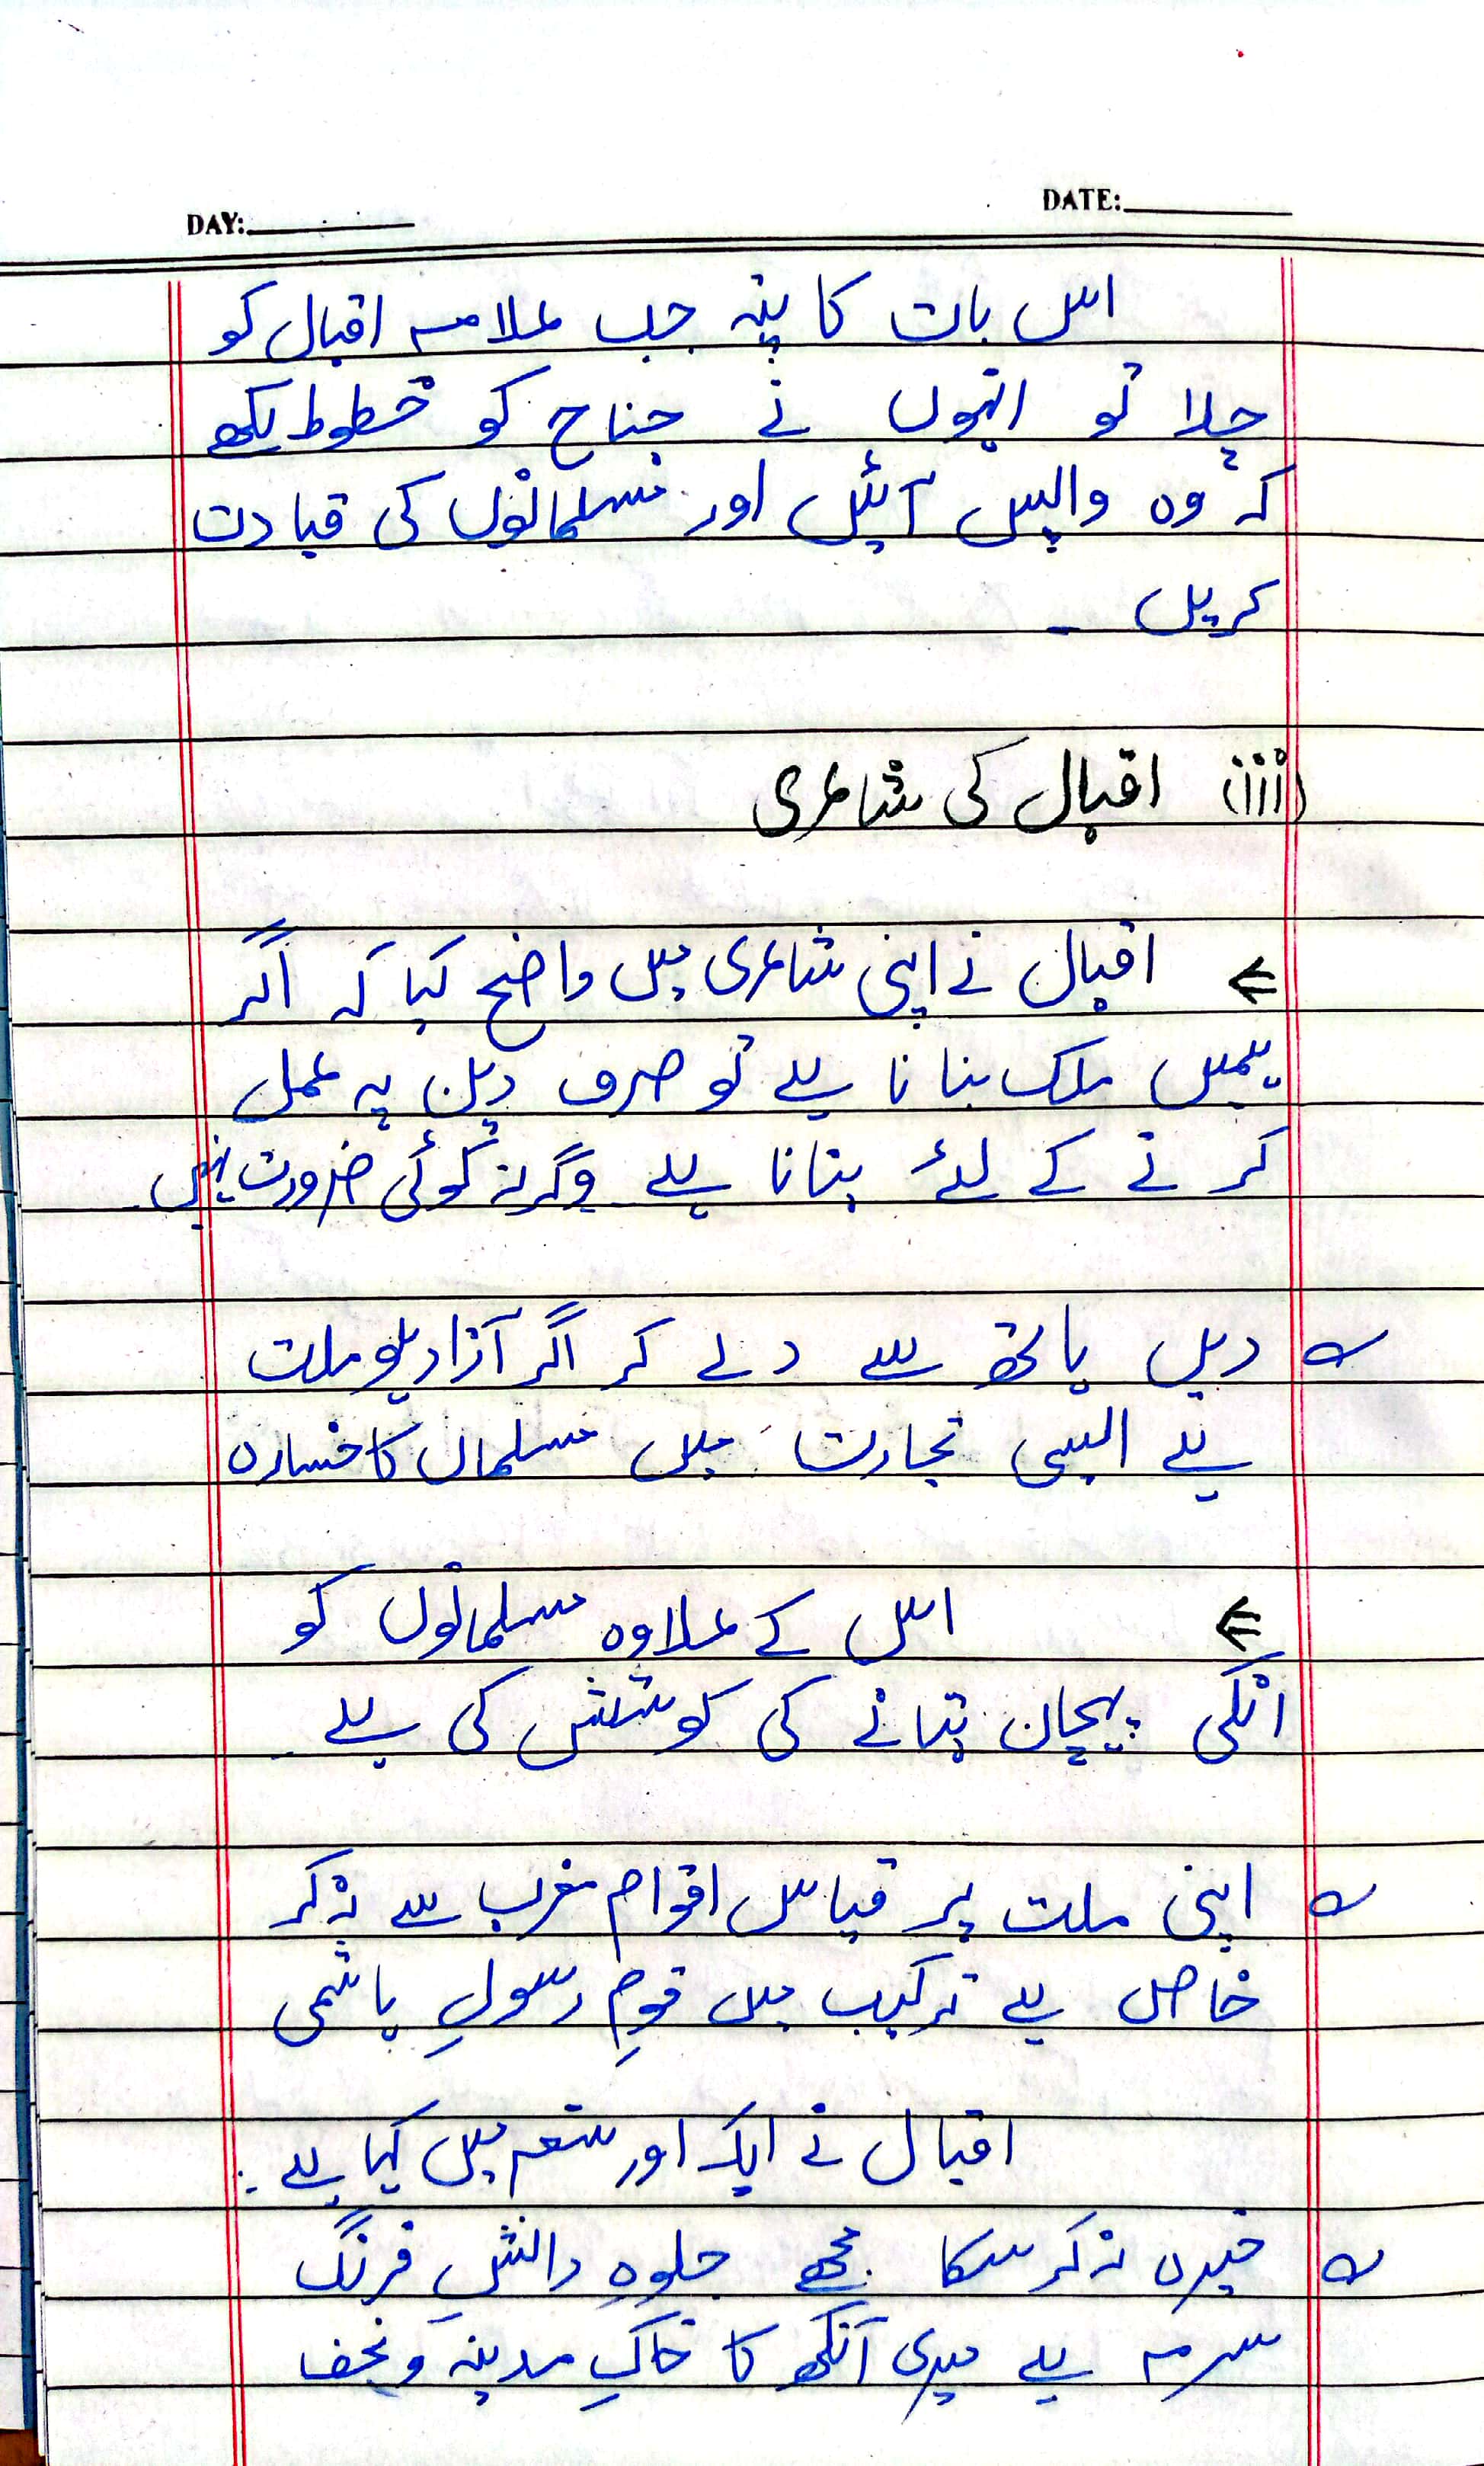 DAY:
DATE:
اس بات کا پتہ جب علامہ اقبال کو
چلا تو انہوں نے جناح کو خطوط لکھے
کہ وہ واپس آئیں اور مسلمانوں کی قیادت
کریں ۔
(iii) اقبال کی شاعری
← اقبال نے اپنی شاعری میں واضح کیا کہ اگر
ہمیں ملک بنانا ہے تو صرف دین پہ عمل
کرنے کے لئے بنانا ہے وگرنہ کوئی ضرورت نہیں۔
؎ دیں ہاتھ سے دے کر اگر آزاد ہو ملت
ہے ایسی تجارت میں مسلماں کا خسارہ
← اس کے علاوہ مسلمانوں کو
انکی پہچان بتانے کی کوشش کی ہے ۔
؎ اپنی ملت پر قیاس اقوام مغرب سے نہ کر
خاص ہے ترکیب میں قومِ رسولِ ہاشمی
اقبال نے ایک اور شعر میں کہا ہے :
؎ خیرہ نہ کر سکا مجھے جلوہِ دانشِ فرنگ
سرمہ ہے میری آنکھ کا خاکِ مدینہ و نجف